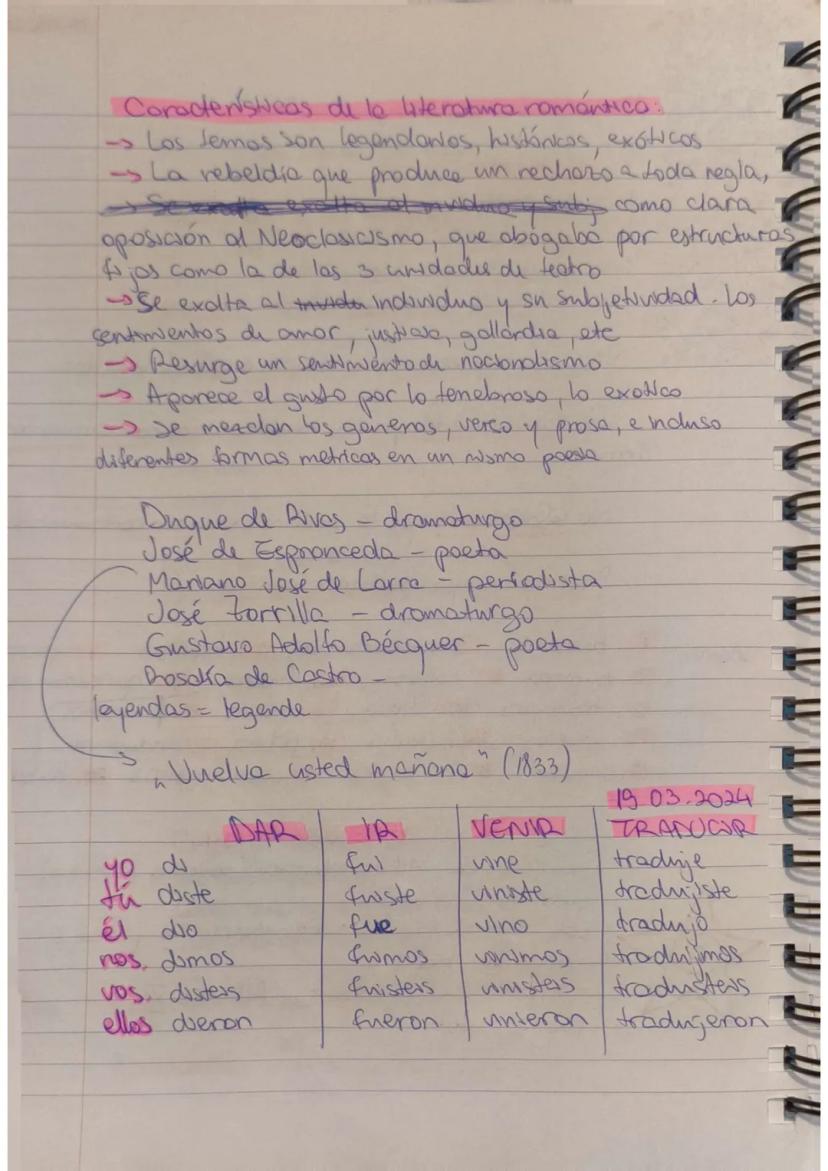 Características de la literatura romántica:
→ Los temas son legendarios, históricos, exóticos
→ La rebeldía que produce un rechazo a toda regla,
como clara
oposición al Neoclasicismo, que abogaba por estructuras
fijas como la de las 3 unidades de teatro
→ Se exalta al individuo y su subjetividad. Los
sentimientos de amor, justicia, gallardia, etc
→ Resurge un sentimiento de nacionalismo
→ Aparece el gusto por lo tenebroso, lo exotico
→ Se mezclan los géneros, verso y prosa, e incluso
diferentes formas metricas en un mismo poesia
Duque de Rivas - dramaturgo
José de Espronceda - poeta
Mariano José de Larra - periodista
José Zorrilla - dramaturgo
Gustavo Adolfo Bécquer - poeta
Rosalía de Castro -
leyendas = legende
„Vuelva usted mañana" (1833)
19.03.2024
DAR IR VENIR TRADUCIR
yo di fui vine traduje
tú diste fuiste viniste tradujiste
él dio fue vino tradujo
nos. dimos fuimos vinimos tradujimos
vos. disteis fuisteis vinisteis
ellos dieron fueron vinieron tradujeron